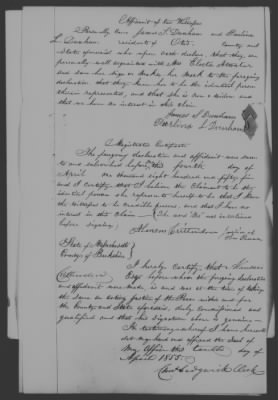 Affidavit of the Witness
Personally came James S. Dunham and Barbara
L. Dunham residents of Otis County and
State aforesaid who upon oath declare that they are
personally well acquainted with Mrs
and saw her sign or make her mark to the foregoing
declaration that they know her to be the identical person
therein represented, and that she is now a widow and
that we have no interest in this claim.
James S. Dunham
Barbara L Dunham
Magistrate's Certificate
The foregoing declaration and affidavit were sworn
to and subscribed before me this fourth day of
April one thousand eight hundred and fifty five
and I certify that I believe the Claimant to be the
identical person she represents herself to be that I know
the witnesses to be credible persons and that I have no
interest in this Claim
before signing
Crittenden Justice of
the Peace
State of Massachusetts
County of Berkshire
I hereby Certify that
Crittenden Esqr before whom the foregoing declaration
and affidavit were made is and was at the time of taking
the same an acting Justice of the Peace within and for
the County and State aforesaid, duly Commissioned and
qualified and that his Signature above is genuine
In testimony whereof I have hereunto
set my hand and affixed the Seal of
my Office this day of
April 1855.
Sedgwick Clerk